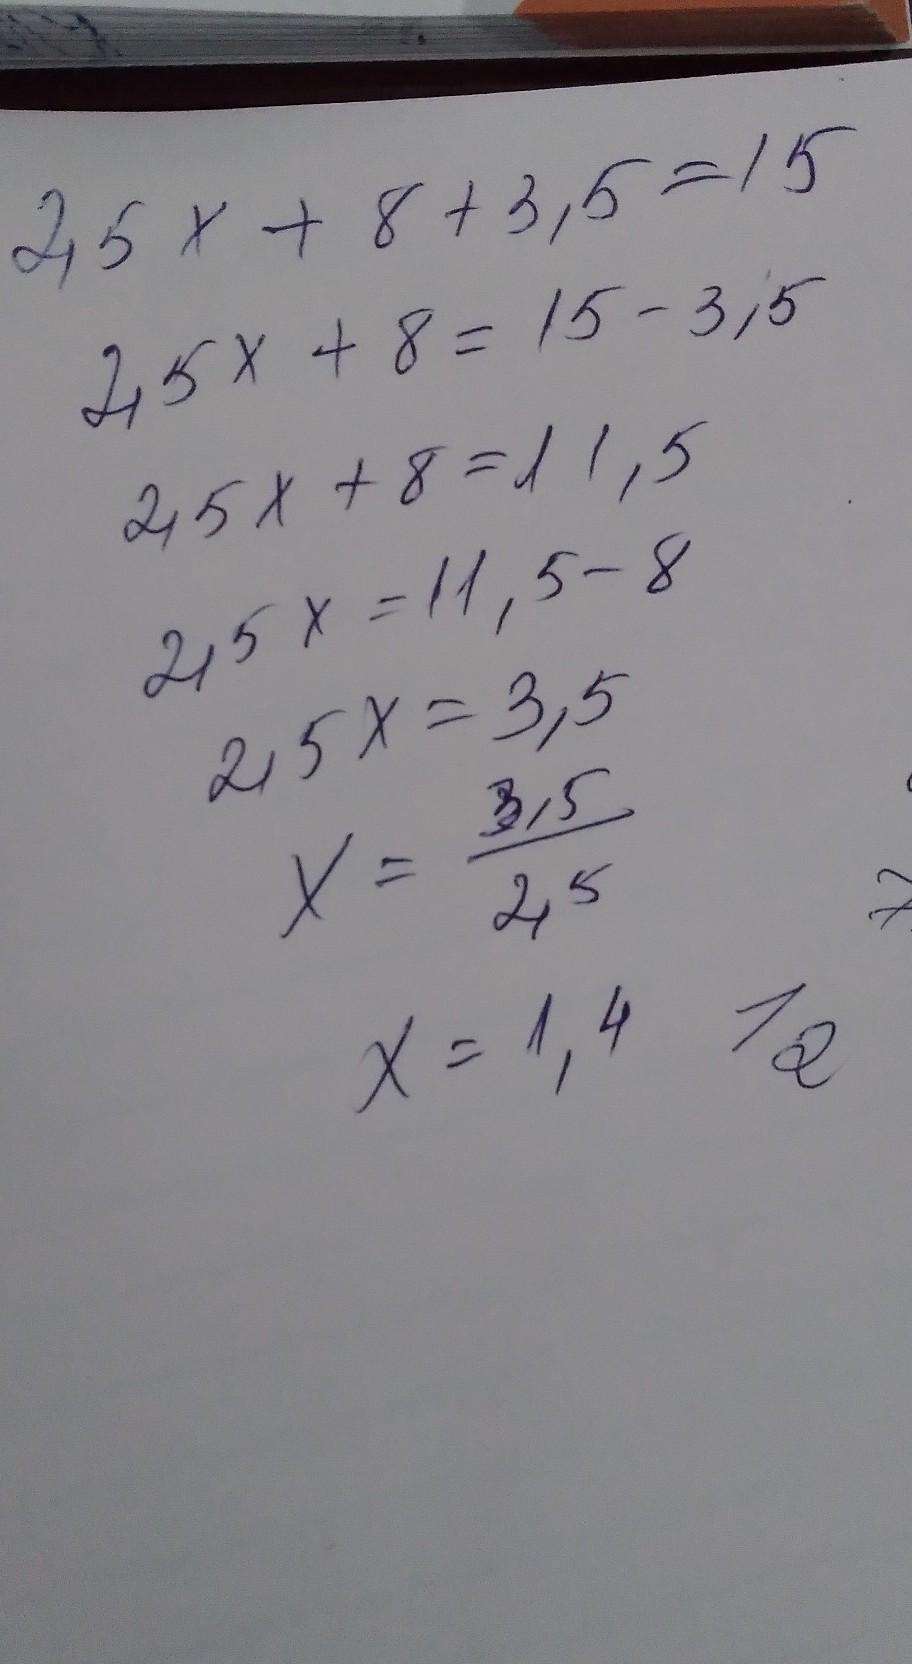 2,5x + 8 + 3,5 = 15
2,5x + 8 = 15 - 3,5
2,5x + 8 = 11,5
2,5x = 11,5 - 8
2,5x = 3,5
x = 3,5/2,5
x = 1,4